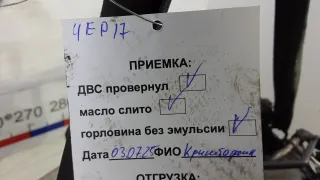 ЧЕР17
ПРИЕМКА:
ДВС провернул
масло слито
горловина без эмульсии
Дата 03.07.25 ФИО
ОТГРУЗКА:
0 *270 280